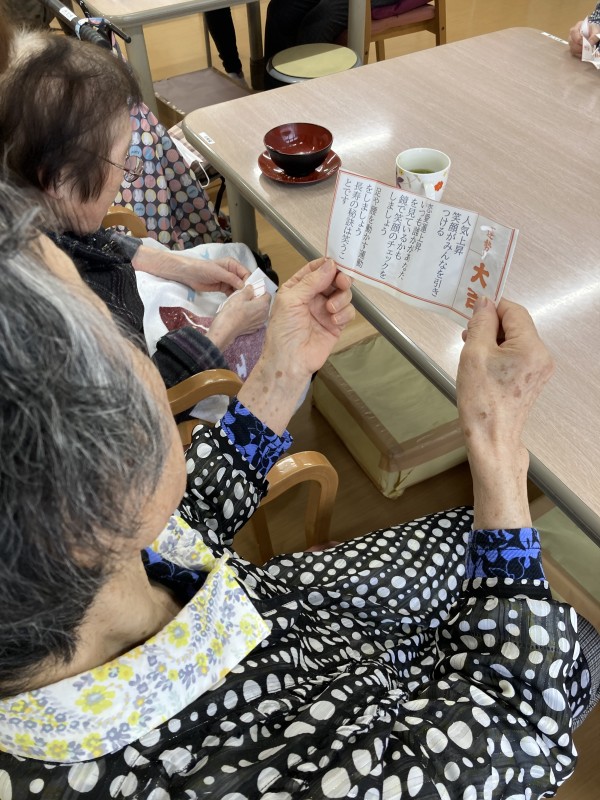 大吉
人気上昇
笑顔がみんなを引き
つける
恋愛運上昇
いつも誰かがあなた
を見ているかも
鏡で笑顔のチェックを
しましょう
足や腰を動かす運動
をしましょう
長寿の秘訣は笑うこ
とです